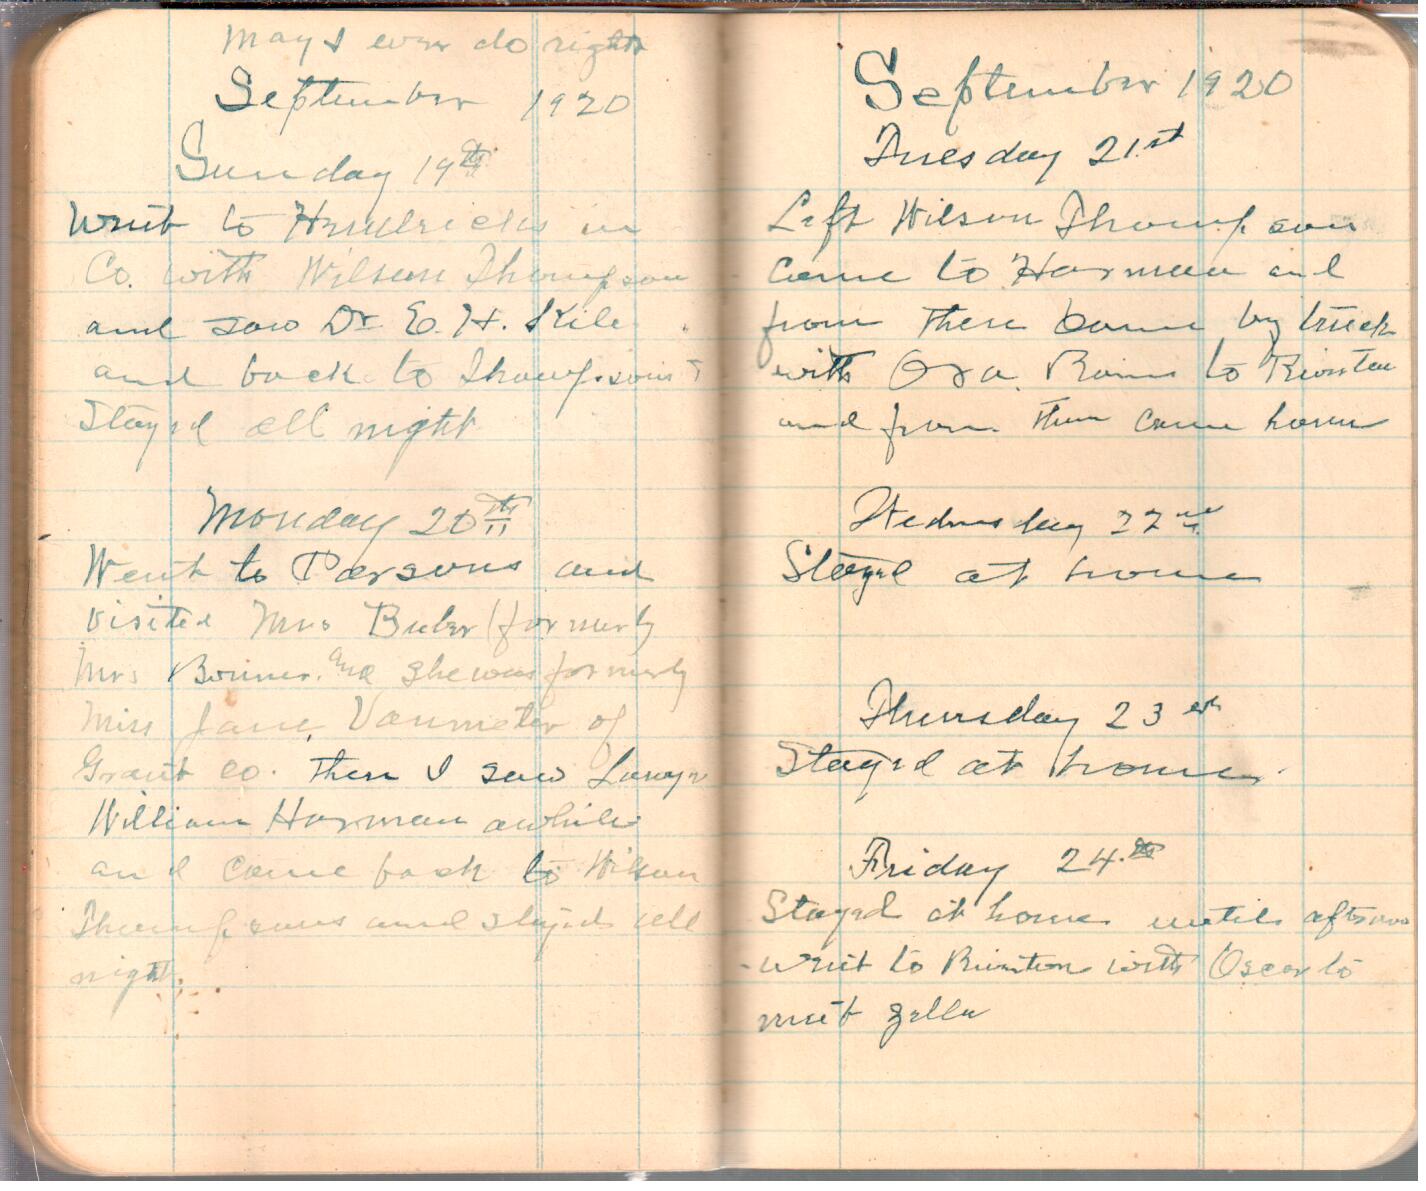 May I ever do right
September 1920
Sunday 19th
Went to Hendricks in
Co. with Wilson Thompson
and saw Dr E. H. Kile
and back to Thompsons &
Stayed all night
Monday 20th
Went to Parsons and
visited Mrs (formerly
Mrs Bonner. and she was formerly
Miss Jane Vanmeter of
Grant Co. then I saw Lawyr
William Harman awhile
and came back to Wilson
Thompsons and stayed all
night.
September 1920
Tuesday 21st
Left Wilson Thompson
came to Harman and
from there came by truck
with Ora to
and from then came home
Wednesday 22nd
Stayed at home
Thursday 23
Stayed at home
Friday 24th
Stayed at home until
went to with Oscar to
meet Zella